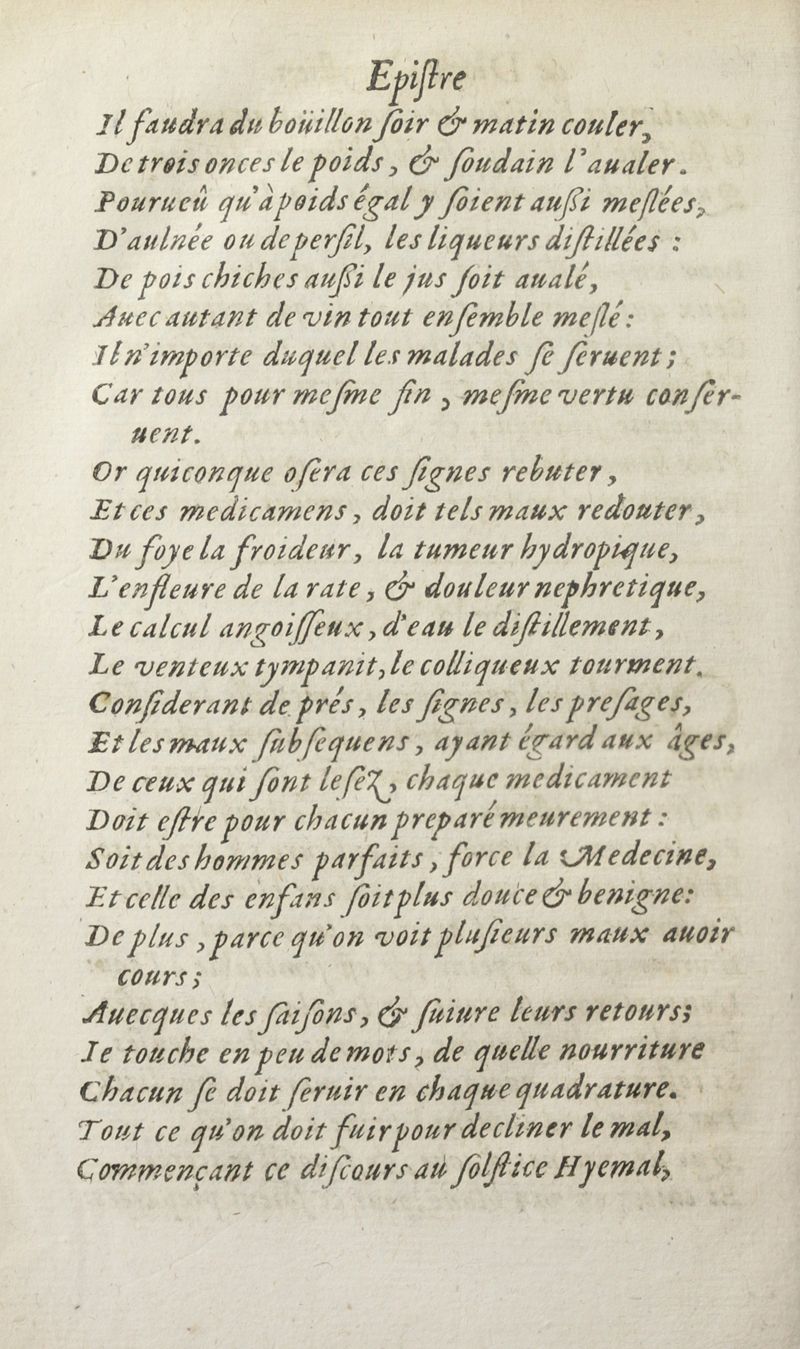 Epiſtre
Il faudra du boüillon ſoir & matin couler,
De trois onces le poids, & ſoudain l'aualer.
Pourueû qu'à poids égal y ſoient auſſi meſlées,
D'aulnée ou de perſil, les liqueurs diſtillées :
De pois chiches auſſi le jus ſoit aualé,
Auec autant de vin tout enſemble meſlé :
Il n'importe duquel les malades ſe ſeruent ;
Car tous pour meſme fin , meſme vertu conſer-
uent.
Or quiconque oſera ces ſignes rebuter,
Et ces medicamens, doit tels maux redouter,
Du foye la froideur, la tumeur hydropique,
L'enfleure de la rate, & douleur nephretique,
Le calcul angoiſſeux, d'eau le diſtillement,
Le venteux tympanit, le colliqueux tourment.
Conſiderant de prés, les ſignes, les preſages,
Et les maux ſubſequens, ayant égard aux âges,
De ceux qui ſont leſez, chaque medicament
Doit eſtre pour chacun preparé meurement :
Soit des hommes parfaits, force la Medecine,
Et celle des enfans ſoit plus douce & benigne:
De plus , parce qu'on voit pluſieurs maux auoir
cours ;
Auecques les ſaiſons, & ſuiure leurs retours;
Ie touche en peu de mots, de quelle nourriture
Chacun ſe doit ſeruir en chaque quadrature.
Tout ce qu'on doit fuir pour decliner le mal,
Commençant ce diſcours au ſolſtice Hyemal,